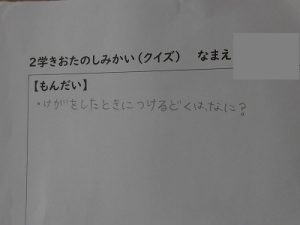 2学きおたのしみかい(クイズ) なまえ
【もんだい】
・けがをしたときにつけるどくは、なに?